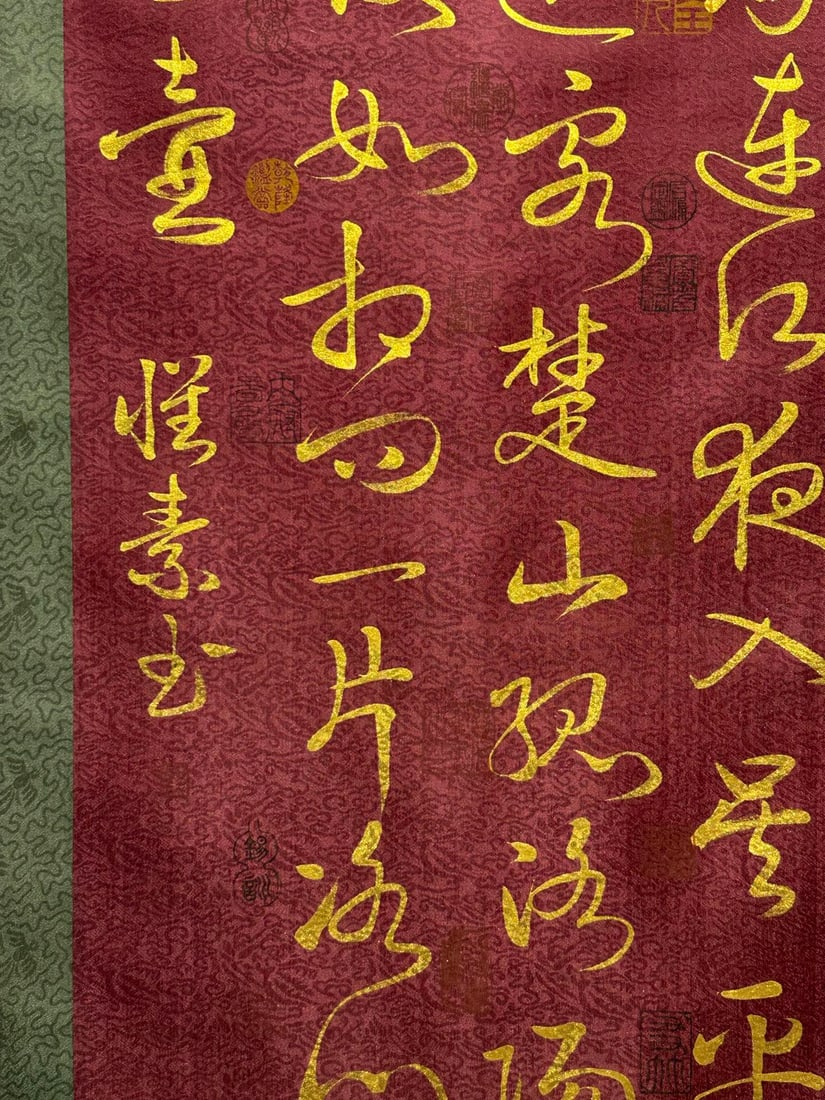 連江夜入吳平
客楚山孤洛陽
如相問一片冰心
壺
懷素書